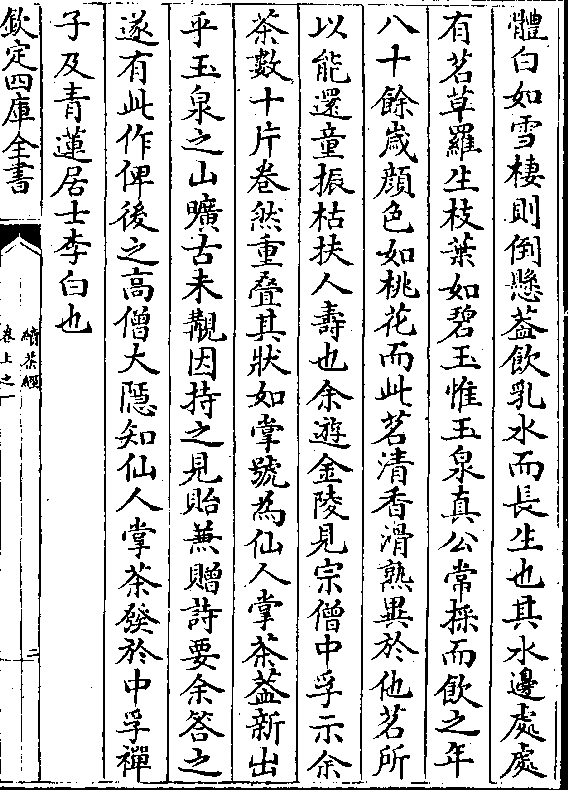 體白如雪棲則倒懸葢飲乳水而長生也其水邊處處
有茗草羅生枝葉如碧玉惟玉泉真公常採而飲之年
八十餘嵗顔色如桃花而此茗清香滑熟異於他茗所
以能還童振枯扶人壽也余遊金陵見宗僧中孚示余
茶數十片卷然重疊其狀如掌號為仙人掌茶葢新出
乎玉泉之山曠古未覯因持之見貽兼贈詩要余答之
遂有此作俾後之高僧大隱知仙人掌茶發於中孚禪
子及青蓮居士李白也
欽定四庫全書
續茶經
卷上之一
二